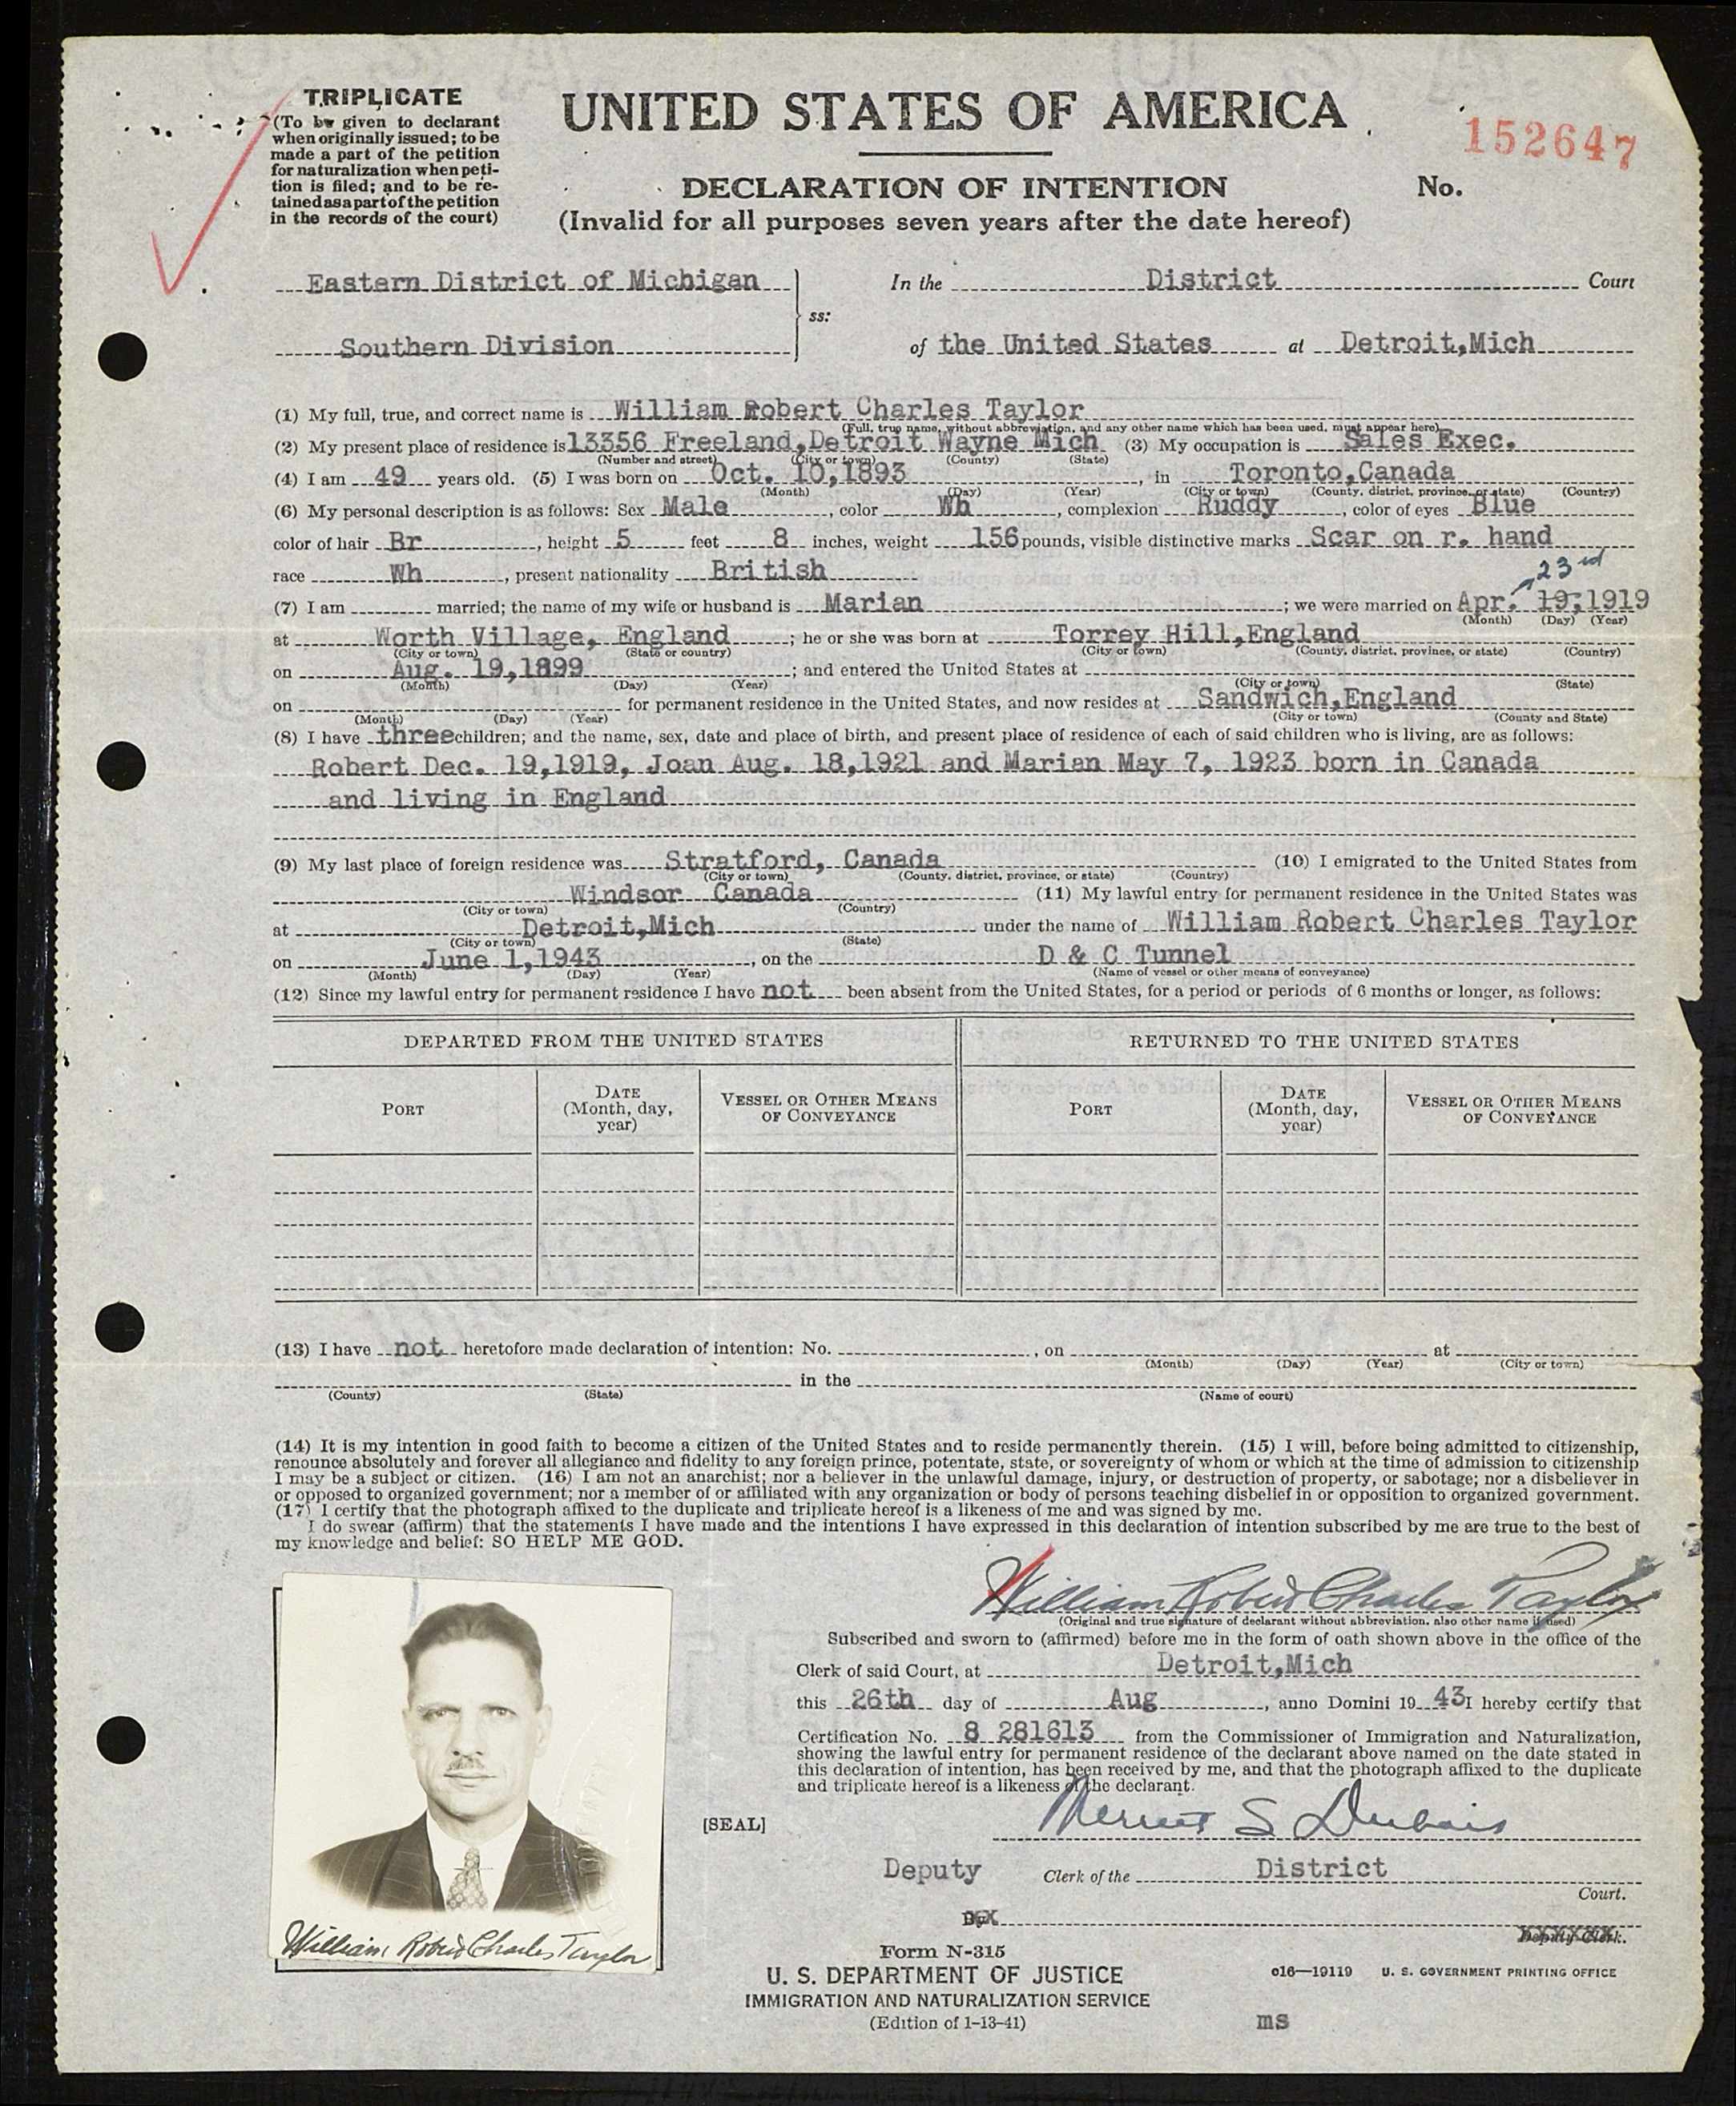 TRIPLICATE
(To be given to declarant
when originally issued; to be
made a part of the petition
for naturalization when peti-
tion is filed; and to be re-
tained as a part of the petition
in the records of the court)
UNITED STATES OF AMERICA
152647
DECLARATION OF INTENTION
No.
(Invalid for all purposes seven years after the date hereof)
Eastern District of Michigan
In the District Court
ss:
Southern Division
of the United States at Detroit,Mich
(1) My full, true, and correct name is William Robert Charles Taylor
(Full, true name, without abbreviation, and any other name which has been used, must appear here)
(2) My present place of residence is 13356 Freeland,Detroit Wayne Mich (3) My occupation is Sales Exec.
(Number and street) (City or town) (County) (State)
(4) I am 49 years old. (5) I was born on Oct. 10,1893, in Toronto,Canada
(Month) (Day) (Year) (City or town) (County, district, province, or state) (Country)
(6) My personal description is as follows: Sex Male, color Wh, complexion Ruddy, color of eyes Blue
color of hair Br, height 5 feet 8 inches, weight 156 pounds, visible distinctive marks Scar on r. hand
race Wh, present nationality British
23rd
(7) I am married; the name of my wife or husband is Marian; we were married on Apr. 19,1919
(Month) (Day) (Year)
at Worth Village, England; he or she was born at Torrey Hill,England
(City or town) (State or country) (City or town) (County, district, province, or state) (Country)
on Aug. 19,1899; and entered the United States at
(Month) (Day) (Year) (City or town) (State)
on for permanent residence in the United States, and now resides at Sandwich,England
(Month) (Day) (Year) (City or town) (County and State)
(8) I have three children; and the name, sex, date and place of birth, and present place of residence of each of said children who is living, are as follows:
Robert Dec. 19,1919, Joan Aug. 18,1921 and Marian May 7, 1923 born in Canada
and living in England
(9) My last place of foreign residence was Stratford, Canada (10) I emigrated to the United States from
(City or town) (County, district, province, or state) (Country)
Windsor Canada (11) My lawful entry for permanent residence in the United States was
(City or town) (Country)
at Detroit,Mich under the name of William Robert Charles Taylor
(City or town) (State)
on June 1,1943, on the D & C Tunnel
(Month) (Day) (Year) (Name of vessel or other means of conveyance)
(12) Since my lawful entry for permanent residence I have not been absent from the United States, for a period or periods of 6 months or longer, as follows:
DEPARTED FROM THE UNITED STATES
RETURNED TO THE UNITED STATES
PORT
DATE
(Month, day,
year)
VESSEL OR OTHER MEANS
OF CONVEYANCE
PORT
DATE
(Month, day,
year)
VESSEL OR OTHER MEANS
OF CONVEYANCE
(13) I have not heretofore made declaration of intention: No. , on at
(Month) (Day) (Year) (City or town)
in the
(County) (State) (Name of court)
(14) It is my intention in good faith to become a citizen of the United States and to reside permanently therein. (15) I will, before being admitted to citizenship,
renounce absolutely and forever all allegiance and fidelity to any foreign prince, potentate, state, or sovereignty of whom or which at the time of admission to citizenship
I may be a subject or citizen. (16) I am not an anarchist; nor a believer in the unlawful damage, injury, or destruction of property, or sabotage; nor a disbeliever in
or opposed to organized government; nor a member of or affiliated with any organization or body of persons teaching disbelief in or opposition to organized government.
(17) I certify that the photograph affixed to the duplicate and triplicate hereof is a likeness of me and was signed by me.
I do swear (affirm) that the statements I have made and the intentions I have expressed in this declaration of intention subscribed by me are true to the best of
my knowledge and belief: SO HELP ME GOD.
William Robert Charles Taylor
(Original and true signature of declarant without abbreviation, also other name if used)
Subscribed and sworn to (affirmed) before me in the form of oath shown above in the office of the
Clerk of said Court, at Detroit,Mich
this 26th day of Aug, anno Domini 19 43 I hereby certify that
Certification No. 8 281613 from the Commissioner of Immigration and Naturalization,
showing the lawful entry for permanent residence of the declarant above named on the date stated in
this declaration of intention, has been received by me, and that the photograph affixed to the duplicate
and triplicate hereof is a likeness of the declarant.
S Dubois
[SEAL]
Deputy Clerk of the District
Court.
By
Deputy Clerk.
William Robert Charles Taylor
Form N-315
U. S. DEPARTMENT OF JUSTICE
IMMIGRATION AND NATURALIZATION SERVICE
(Edition of 1-13-41)
o16—19119 U. S. GOVERNMENT PRINTING OFFICE
ms